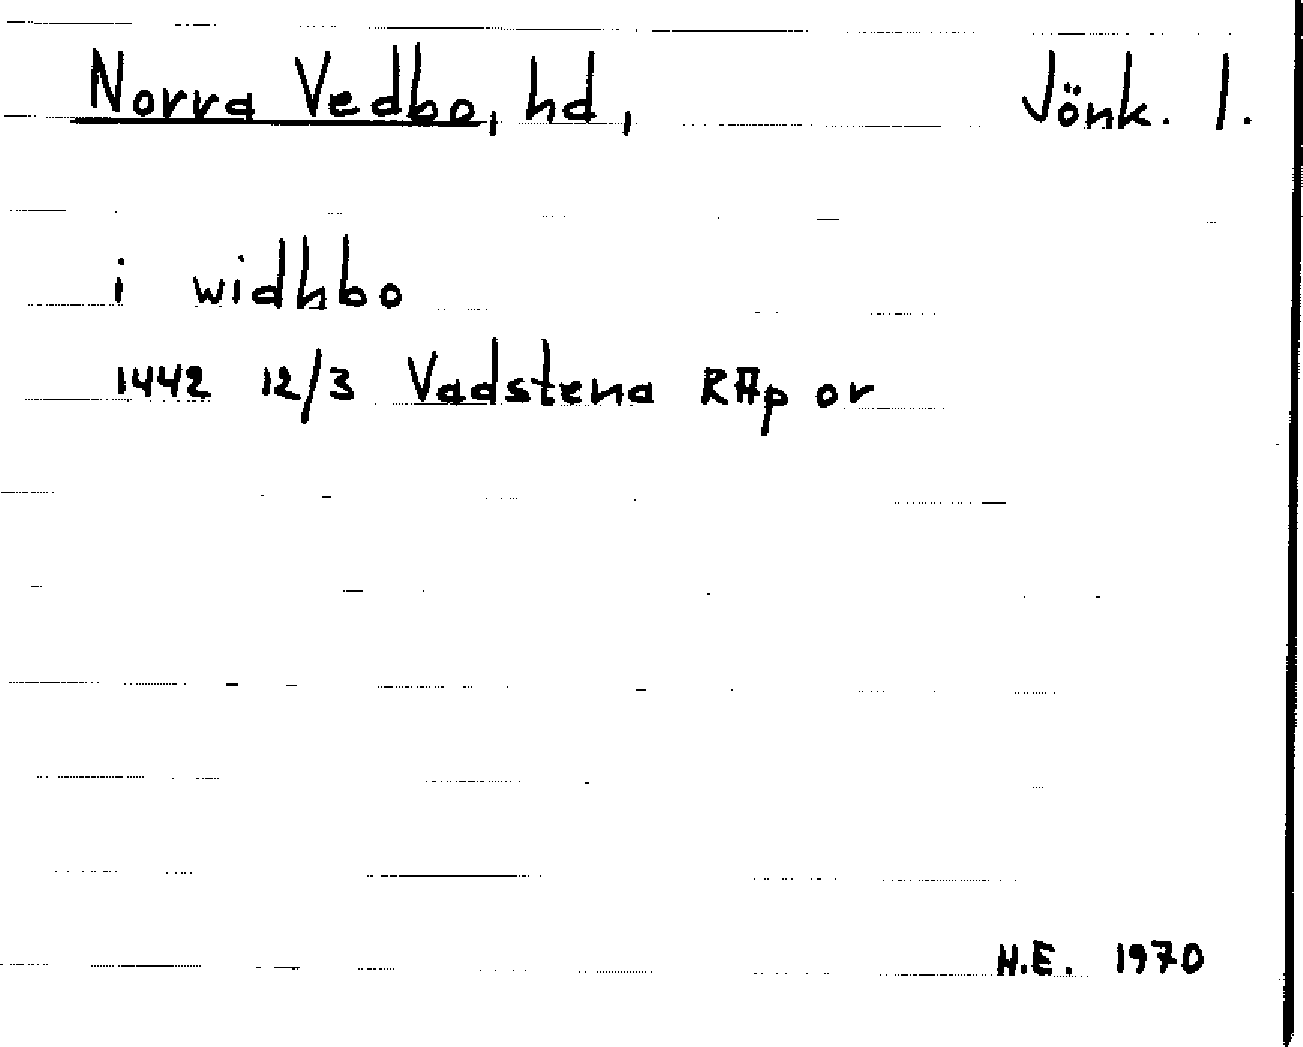 Norra Vedbo, hd, Jönk. l.
i widhbo
1442 12/3 Vadstena RAp or
H.E. 1970